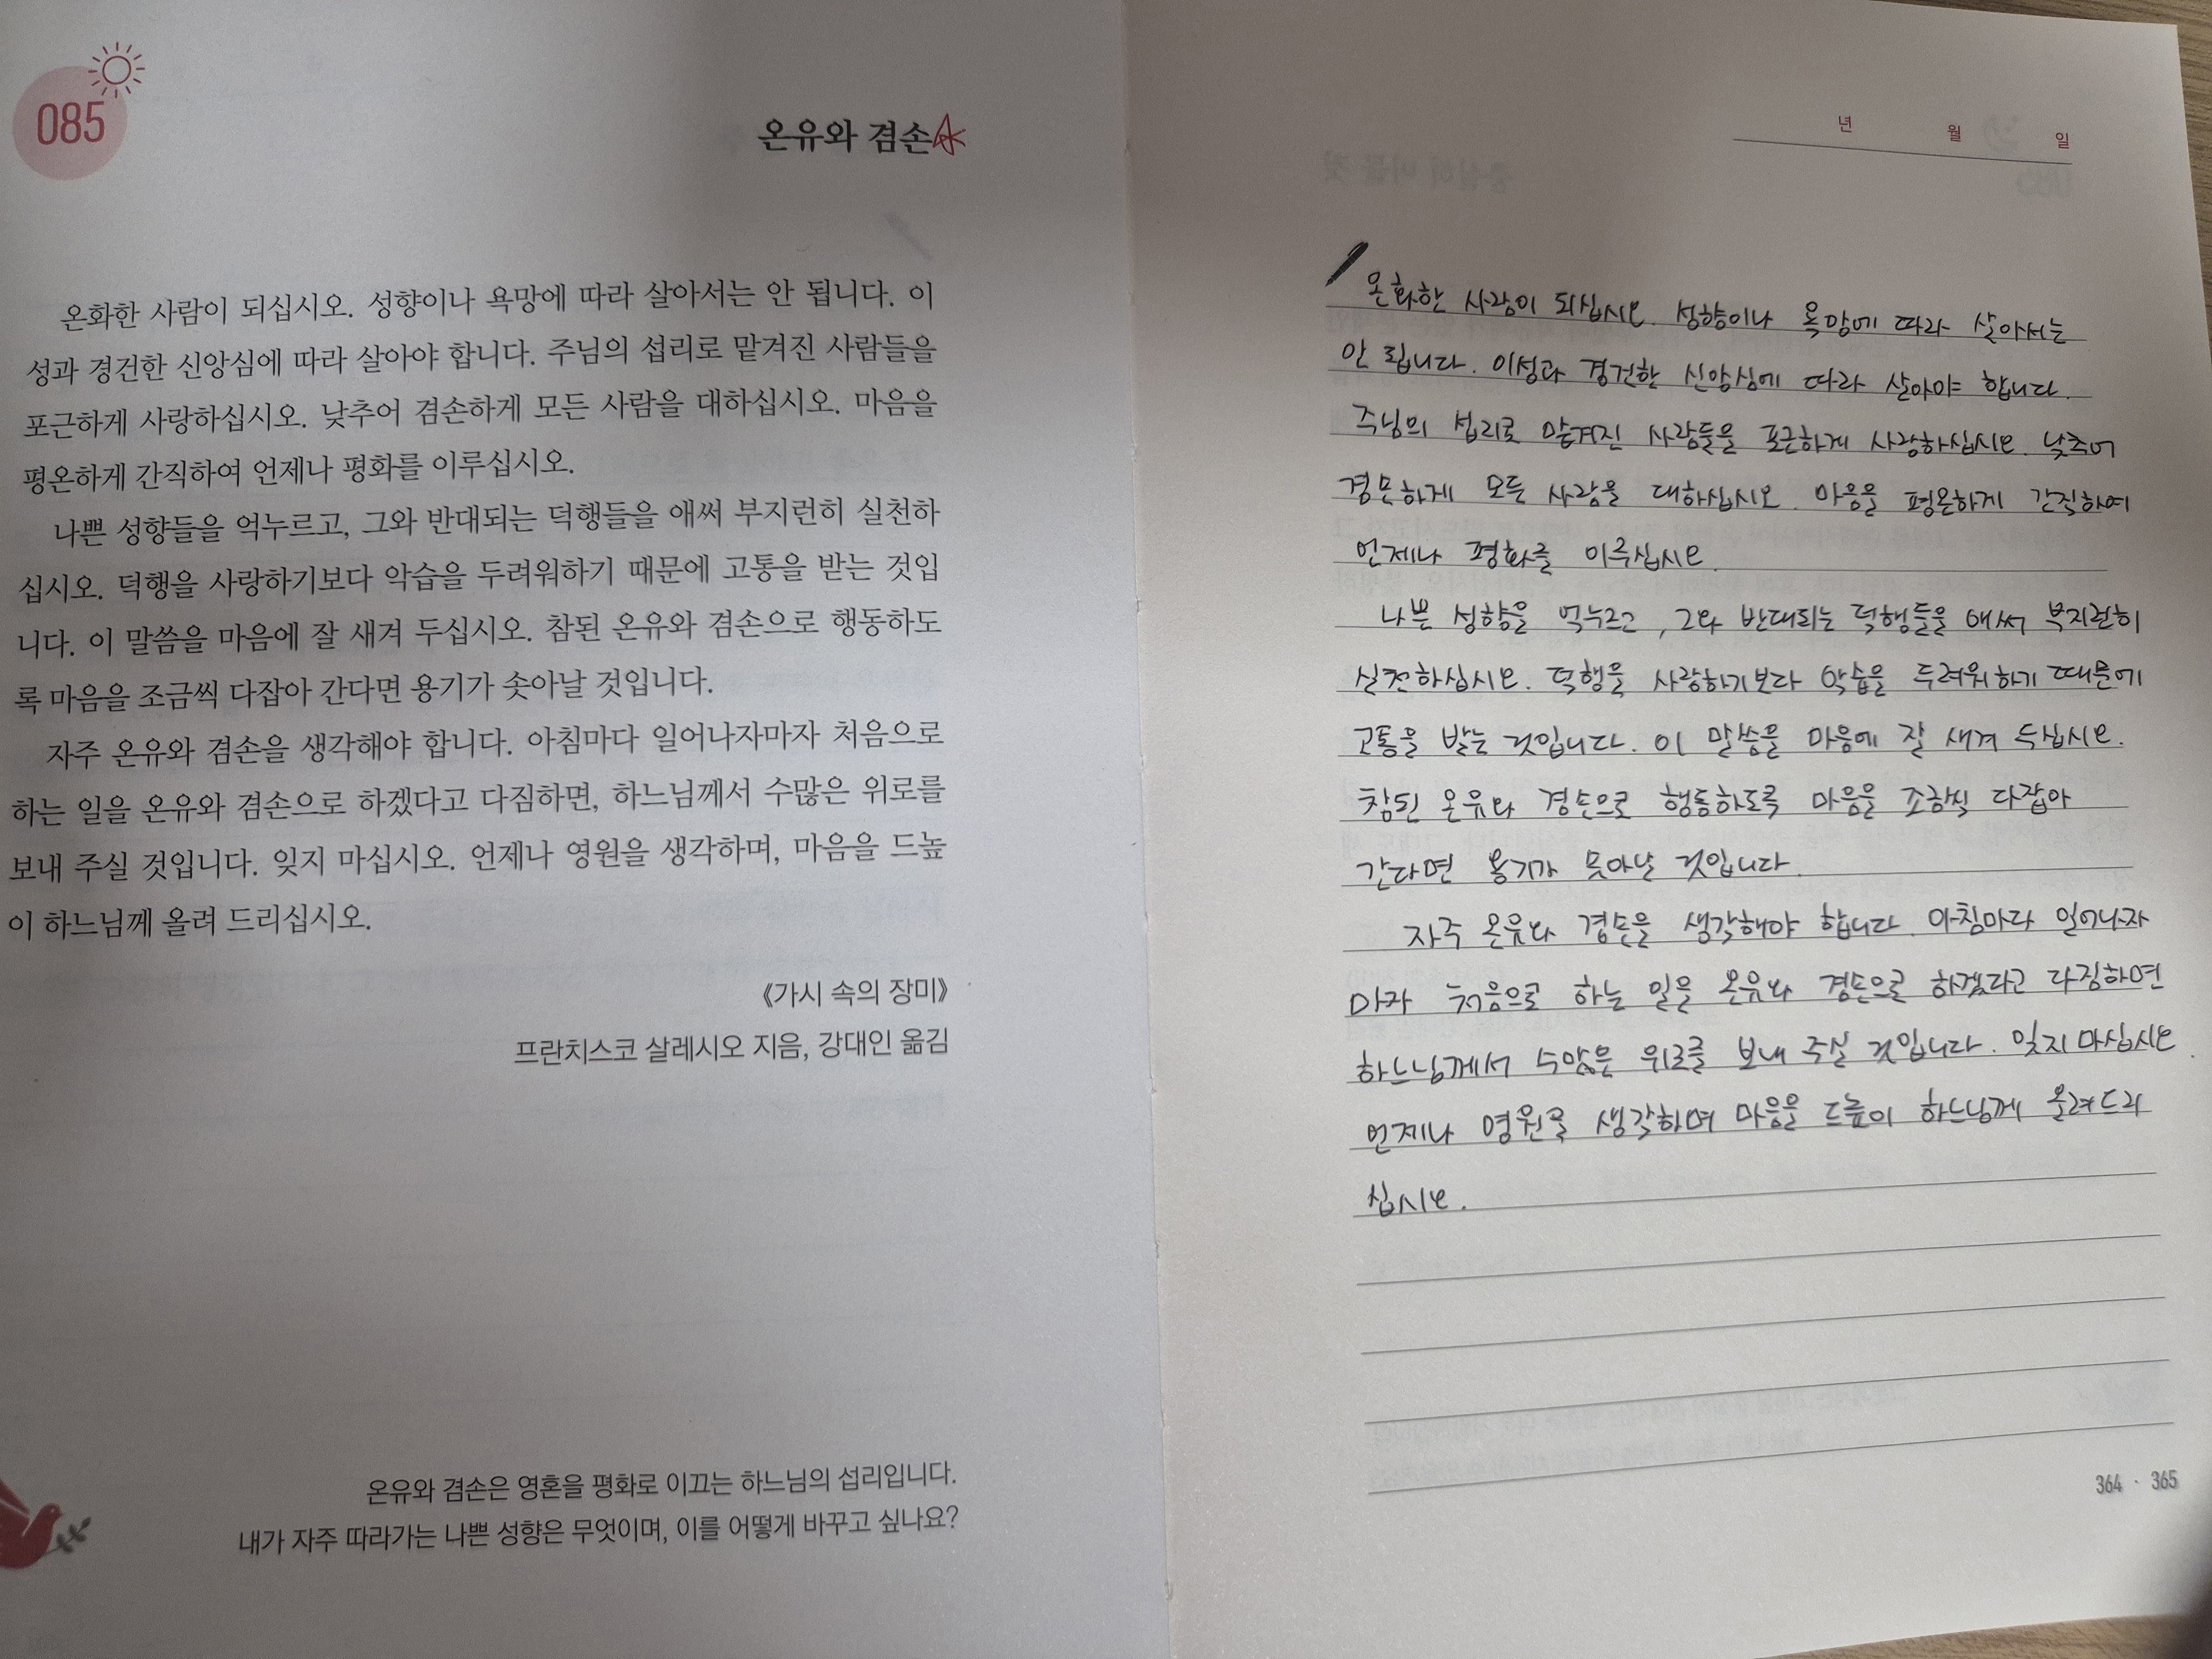 085
온유와 겸손
온화한 사람이 되십시오. 성향이나 욕망에 따라 살아서는 안 됩니다. 이
성과 경건한 신앙심에 따라 살아야 합니다. 주님의 섭리로 맡겨진 사람들을
포근하게 사랑하십시오. 낮추어 겸손하게 모든 사람을 대하십시오. 마음을
평온하게 간직하여 언제나 평화를 이루십시오.
나쁜 성향들을 억누르고, 그와 반대되는 덕행들을 애써 부지런히 실천하
십시오. 덕행을 사랑하기보다 악습을 두려워하기 때문에 고통을 받는 것입
니다. 이 말씀을 마음에 잘 새겨 두십시오. 참된 온유와 겸손으로 행동하도
록 마음을 조금씩 다잡아 간다면 용기가 솟아날 것입니다.
자주 온유와 겸손을 생각해야 합니다. 아침마다 일어나자마자 처음으로
하는 일을 온유와 겸손으로 하겠다고 다짐하면, 하느님께서 수많은 위로를
보내 주실 것입니다. 잊지 마십시오. 언제나 영원을 생각하며, 마음을 드높
이 하느님께 올려 드리십시오.
《가시 속의 장미》
프란치스코 살레시오 지음, 강대인 옮김
온유와 겸손은 영혼을 평화로 이끄는 하느님의 섭리입니다.
내가 자주 따라가는 나쁜 성향은 무엇이며, 이를 어떻게 바꾸고 싶나요?
년 월 일
온화한 사람이 되십시오. 성향이나 욕망에 따라 살아서는
안 됩니다. 이성과 경건한 신앙심에 따라 살아야 합니다.
주님의 섭리로 맡겨진 사람들을 포근하게 사랑하십시오. 낮추어
겸손하게 모든 사람을 대하십시오. 마음을 평온하게 간직하여
언제나 평화를 이루십시오.
나쁜 성향을 억누르고, 그와 반대되는 덕행들을 애써 부지런히
실천하십시오. 덕행을 사랑하기보다 악습을 두려워하기 때문에
고통을 받는 것입니다. 이 말씀을 마음에 잘 새겨 두십시오.
참된 온유와 겸손으로 행동하도록 마음을 조금씩 다잡아
간다면 용기가 솟아날 것입니다.
자주 온유와 겸손을 생각해야 합니다. 아침마다 일어나자
마자 처음으로 하는 일을 온유와 겸손으로 하겠다고 다짐하면
하느님께서 수많은 위로를 보내 주실 것입니다. 잊지 마십시오.
언제나 영원을 생각하며 마음을 드높이 하느님께 올려드리
십시오.
364 · 365